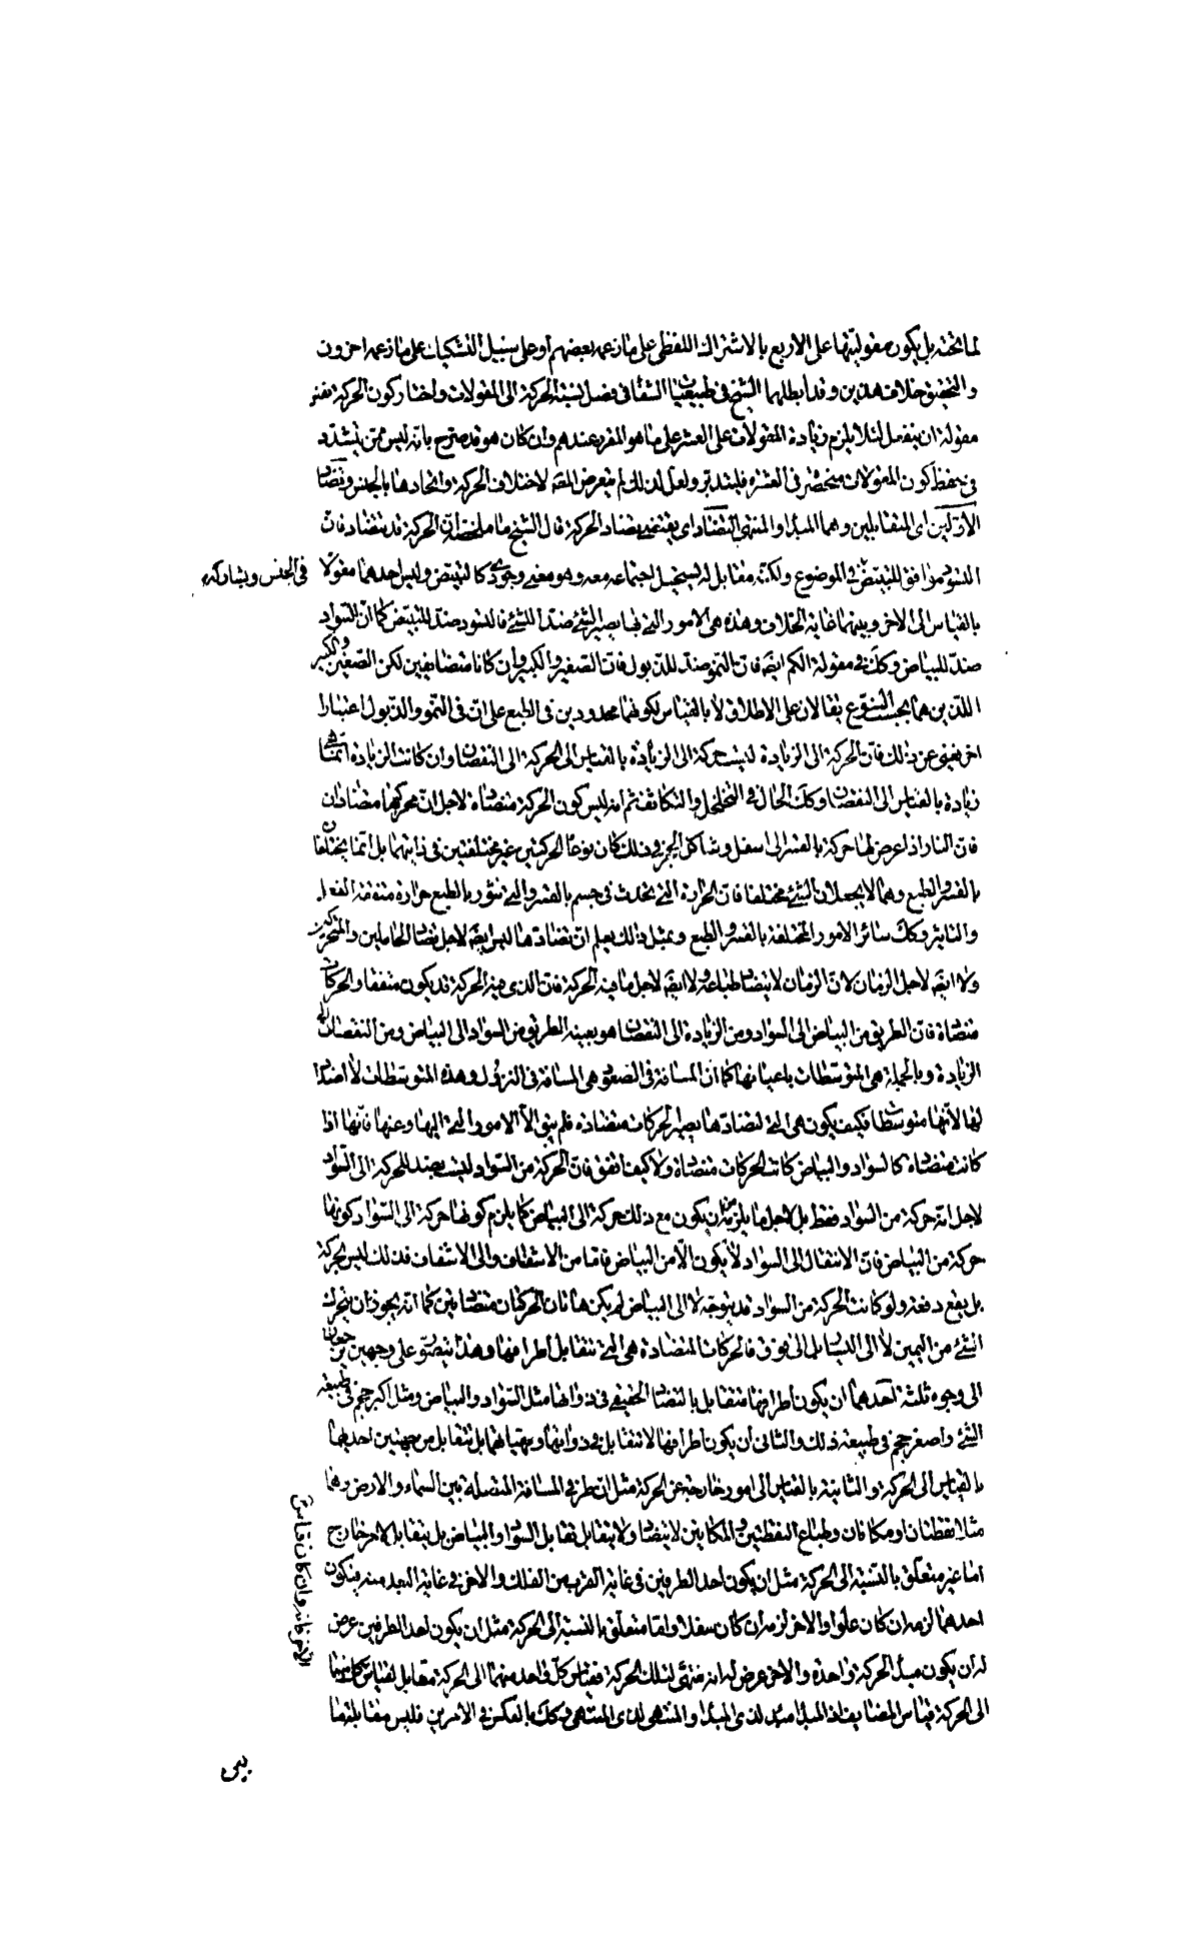 لما تحته بل يكون مقوليتها على الاربع بالاشتراك اللفظى على ما زعمه بعضهم او على سبيل التشكيك على ما زعمه اخرون
والتحقيق خلاف هذين وقد ابطلهما الشيخ فى طبيعيات الشفا فى فصل نسبة الحركة الى المقولات واختار كون الحركة نفس
مقولة ان ينفعل لئلا يلزم زيادة المقولات على العشر على ما هو المقرر عندهم وان كان هو قد صرح بانه ليس ممن يتشدد
فى حفظ كون المقولات منحصرة فى العشرة فليتدبر ولعل لذلك لم يتعرض المصّ لاختلاف الحركة واتحادها بالجنس وتضاد
الاولين اى المتقابلين وهما المبدأ والمنتهى التضاد اى يقتضى تضاد الحركة قال الشيخ ما ملخصه ان الحركة قد تتضاد فان
التسود موافق للتبيض فى الموضوع ولكنه مقابل له يستحيل اجتماعه معه وهو معنى وجودى كالتبيض وليس احدهما مقولا
فى الجنس ويشاركه
بالقياس الى الاخر وبينهما غاية الخلاف وهذه هى الامور التى بها يصير الشئ ضدا للشئ فالتسود ضد للتبيض كما ان السواد
ضد للبياض وكك فى مقولة الكم ايضَ فان النمو ضد للذبول فان الصغير والكبير وان كانا متضايفين لكن الصغير والكبير
اللذين هما بحسب النوع يقالان على الاطلاق لا بالقياس لكونهما محدودين فى الطبع على ان فى النمو والذبول اعتبارا
اخر يغنى عن ذلك فان الحركة الى الزيادة ليست حركة الى الزيادة بالقياس الى الحركة الى النقصان وان كانت الزيادة انما هى
زيادة بالقياس الى النقصان وكك الحال فى التخلخل والتكاثف ثم انه ليس كون الحركة متضادة لاجل ان محركها متضادان
فان النار اذا عرض لها حركة بالقسر الى اسفل وشاكل الحجر فى ذلك كان نوعا الحركتين غير مختلفتين فى ذاتهما بل انما يختلفان
بالقسر والطبع وهما لا يجعلان الشئ مختلفا فان الحرارة التى تحدث فى جسم بالقسر والتى تنور بالطبع حرارة متفقة الفعل
والتاثير وكك سائر الامور المختلفة بالقسر والطبع وبمثل ذلك يعلم ان تضادها ليس ايضَ لاجل تضاد الحاملين والمتحركين
ولا ايضَ لاجل الزمان لان الزمان لا يتضاد طباعه ولا ايضَ لاجل ما فيه الحركة فان الذى فيه الحركة قد يكون متفقا والحركات
متضادة فان الطريق من البياض الى السواد ومن الزيادة الى النقصان هو بعينه الطريق من السواد الى البياض ومن النقصان الى
الزيادة وبالجملة هى المتوسطات باعيانها كما ان المسافة فى الصعود هى المسافة فى النزول وهذه المتوسطات لا اضداد
لها لانها متوسطات فكيف يكون هى التى لتضادها يصير الحركات متضادة فلم يبق الا الامور التى اليها وعنها فانها اذا
كانت متضادة كالسواد والبياض كانت الحركات متضادة ولا كيف اتفق فان الحركة من السواد ليست بضد للحركة الى السواد
لاجل انه حركة من السواد فقط بل لاجل ما يلزمه من ان يكون مع ذلك حركة الى البياض كما يلزم كونها حركة الى السواد كونها
حركة من البياض فان الانتقال الى السواد لا يكون الا من البياض فاما من الاشفاف والى الاشفاف فذلك ليس بحركة
بل يقع دفعة ولو كانت الحركة من السواد قد يتوجه لا الى البياض لم يكن هاتان الحركتان متضادتين كما انه يجوز ان يتحرك
الشئ من اليمين لا الى اليسار بل الى فوق فالحركات المتضادة هى التى تتقابل اطرافها وهذا يتصور على وجهين يرجعان
الى وجوه ثلثة احدهما ان يكون اطرافها متقابل بالتضاد الحقيقى فى ذواتها مثل السواد والبياض ومثل اكبر حجم فى طبيعة
الشئ واصغر حجم فى طبيعة ذلك والثانى ان يكون اطرافها لا تتقابل فى ذواتها وهيئاتها بل تتقابل من جهتين احدهما
بالقياس الى الحركة والثانية بالقياس الى امور خارجة عن الحركة مثل ان طرفى المسافة المتصلة بين السماء والارض وهما
مثلا نقطتان او مكانان وطباع النقطتين والمكانين لا يتضاد ولا يتقابل تقابل السواد والبياض بل يتقابل لامر خارج
اما غير متعلق بالنسبة الى الحركة مثل ان يكون احد الطرفين فى غاية القرب من الفلك والاخر فى غاية البعد منه فيكون
احدهما لزمه ان كان علوا والاخر لزمه ان كان سفلا واما متعلق بالنسبة الى الحركة مثل ان يكون احد الطرفين عرض
له ان يكون مبدأ لحركة واحدة والاخر عرض له انه منتهى لتلك الحركة فقياس كل واحد منهما الى الحركة مقابل لقياس كل منهما
الى الحركة قياس المضايف اذ المبدأ مبدأ لذى المبدأ والمنتهى لذى المنتهى وكك بالعكس فى الامرين فليس مقابلتهما
الاخر فانه وان كان قياس